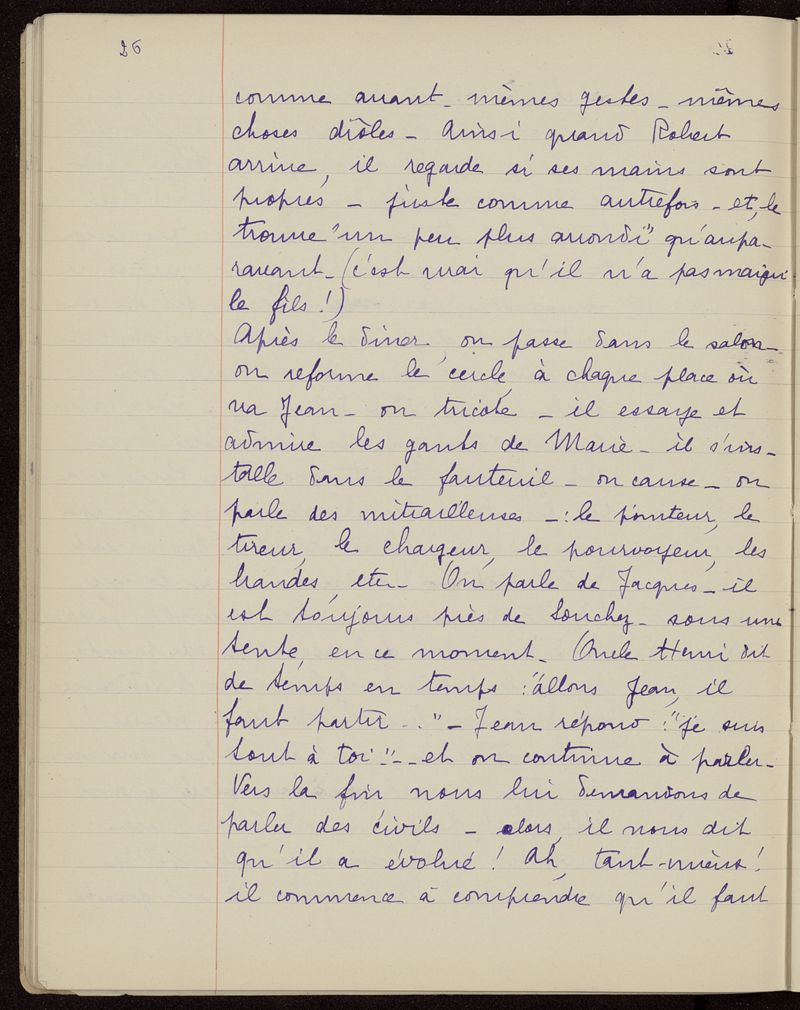 26
comme avant - mêmes gestes - mêmes
choses drôles - Ainsi quand Robert
arrive, il regarde si ses mains sont
propres - juste comme autrefois - et, le
trouve "un peu plus arrondi" qu'aupa-
ravant - (c'est vrai qu'il n'a pas maigri
le fils!)
Après le dîner, on passe dans le salon -
on reforme le cercle, à chaque place où
va Jean - on tricote - il essaye et
admire les gants de Marie - il s'ins-
talle dans le fauteuil - on cause - on
parle des mitrailleuses - : le pointeur, le
tireur, le chargeur, le pourvoyeur, les
bandes, etc - On parle de Jacques - il
est toujours près de Souchez - sous une
tente, en ce moment - Oncle Henri dit
de temps en temps : "allons Jean, il
faut partir .." - Jean répond : "je suis
tout à toi" - - et on continue à parler -
Vers la fin nous lui demandons de
parler des civils - alors, il nous dit
qu'il a évolué ! Ah, tant-mieux !
il commence à comprendre qu'il faut